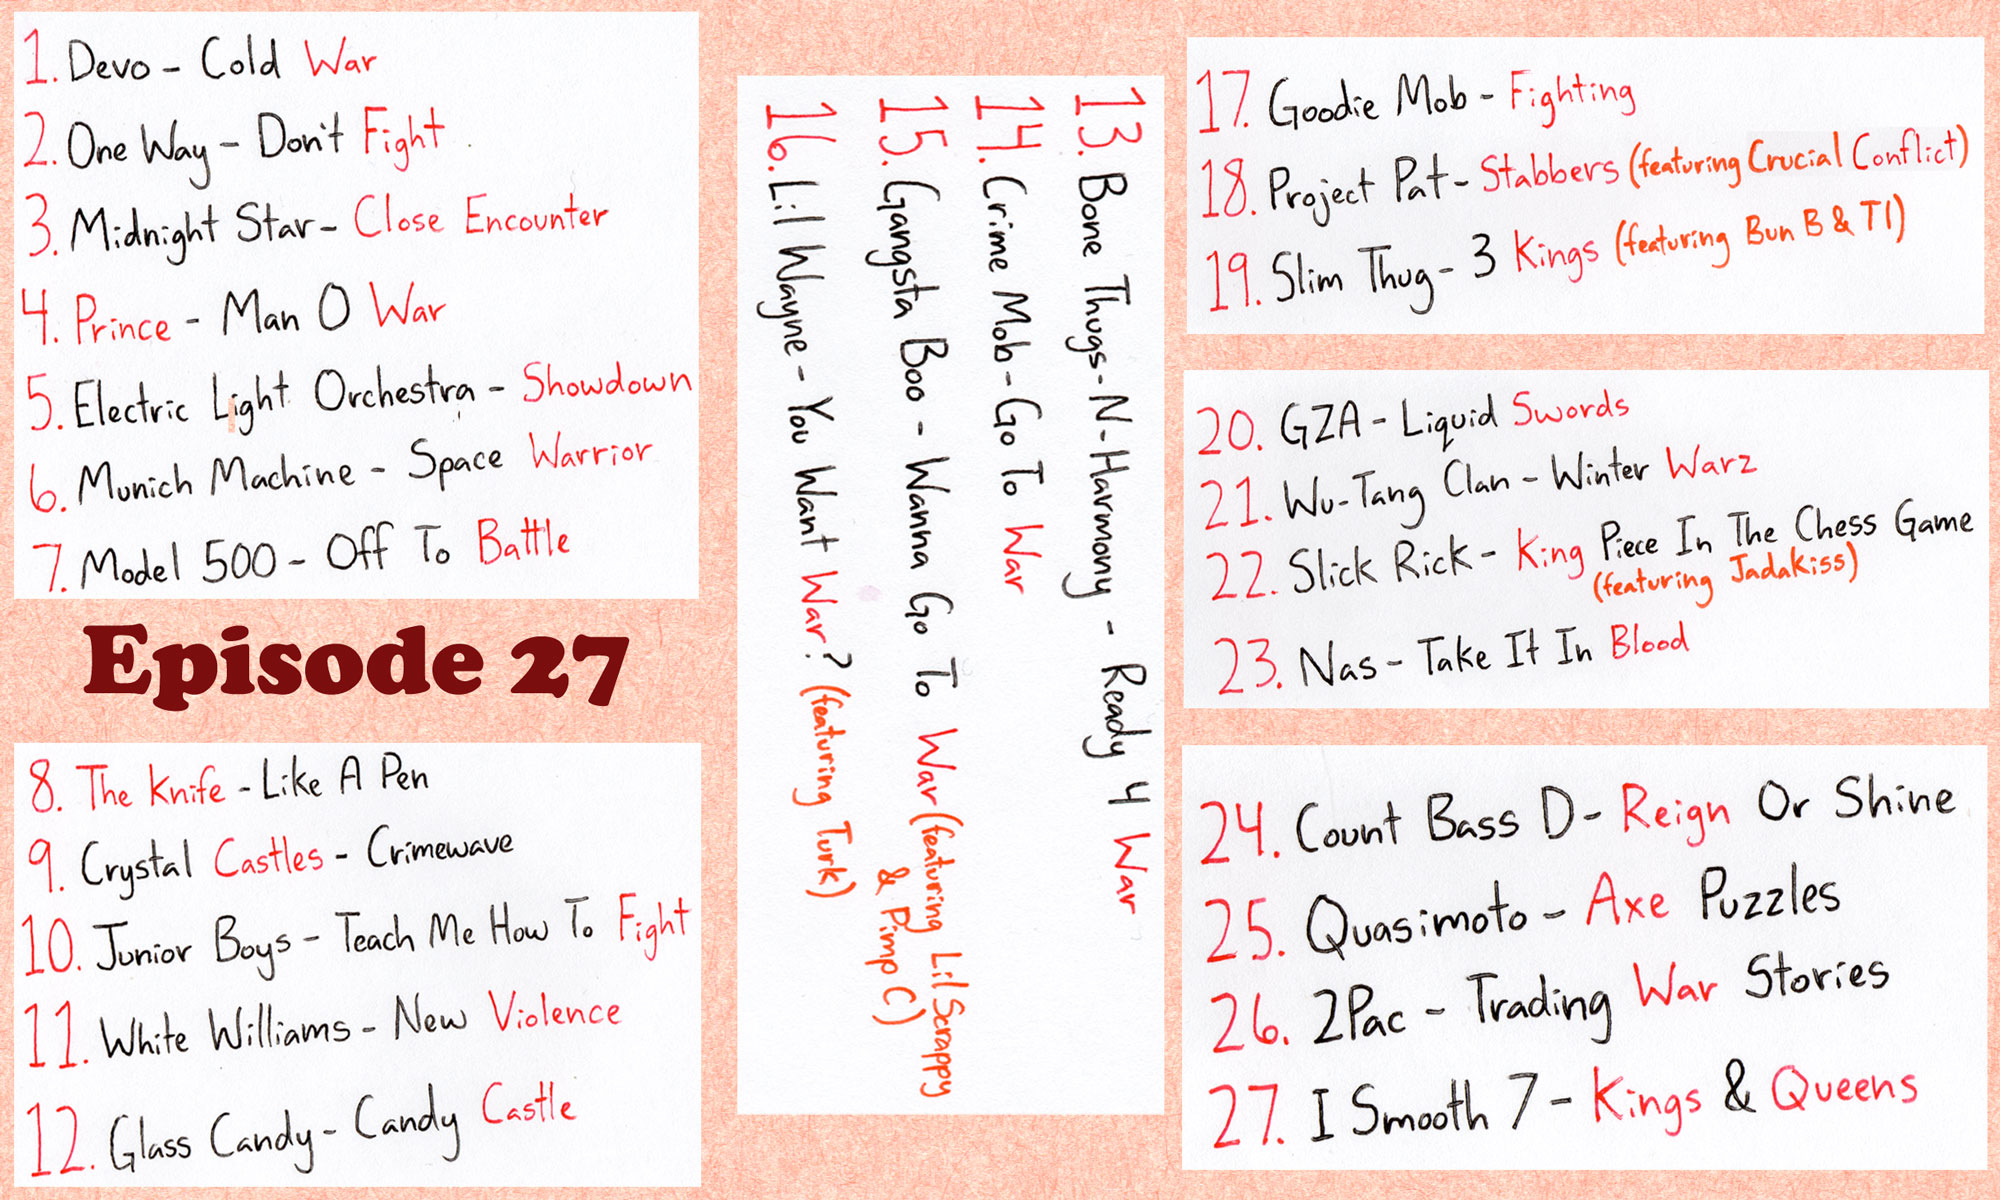 1. Devo - Cold War
2. One Way - Don't Fight
3. Midnight Star - Close Encounter
4. Prince - Man O War
5. Electric Light Orchestra - Showdown
6. Munich Machine - Space Warrior
7. Model 500 - Off To Battle
Episode 27
8. The Knife - Like A Pen
9. Crystal Castles - Crimewave
10. Junior Boys - Teach Me How To Fight
11. White Williams - New Violence
12. Glass Candy - Candy Castle
13. Bone Thugs-N-Harmony - Ready 4 War
14. Crime Mob - Go To War
15. Gangsta Boo - Wanna Go To War (featuring Lil Scrappy
& Pimp C)
16. Lil Wayne - You Want War? (featuring Turk)
17. Goodie Mob - Fighting
18. Project Pat - Stabbers (featuring Crucial Conflict)
19. Slim Thug - 3 Kings (featuring Bun B & TI)
20. GZA - Liquid Swords
21. Wu-Tang Clan - Winter Warz
22. Slick Rick - King Piece In The Chess Game
(featuring Jadakiss)
23. Nas - Take It In Blood
24. Count Bass D - Reign Or Shine
25. Quasimoto - Axe Puzzles
26. 2Pac - Trading War Stories
27. I Smooth 7 - Kings & Queens